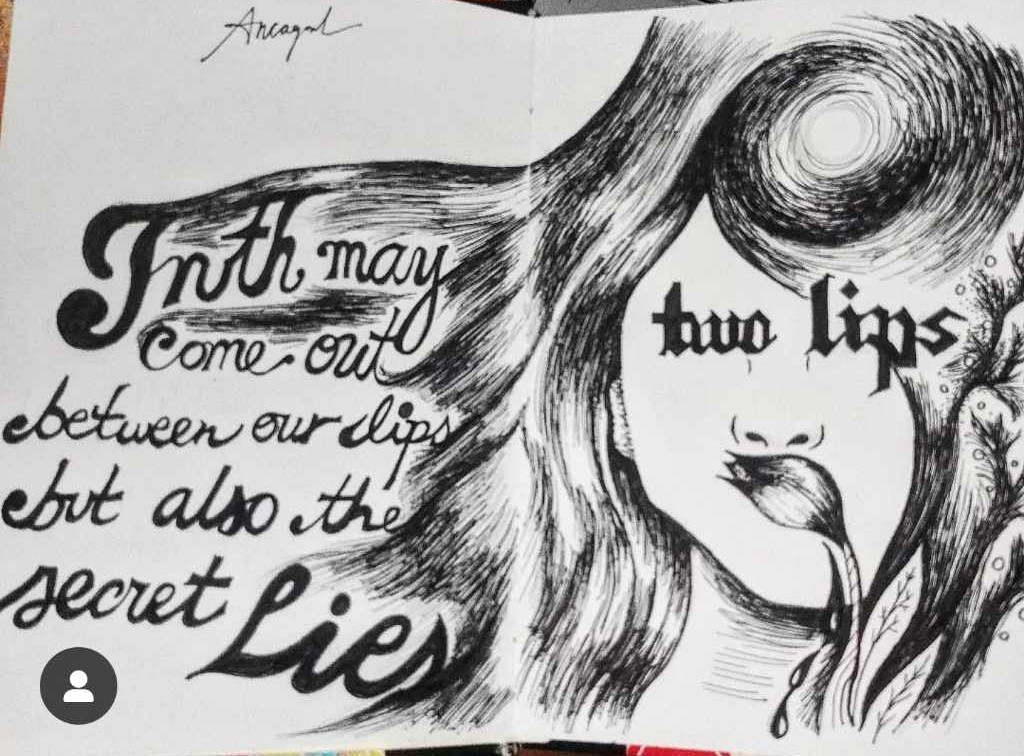 Truth may
come out
between our lips
but also the
secret Lies
two lips